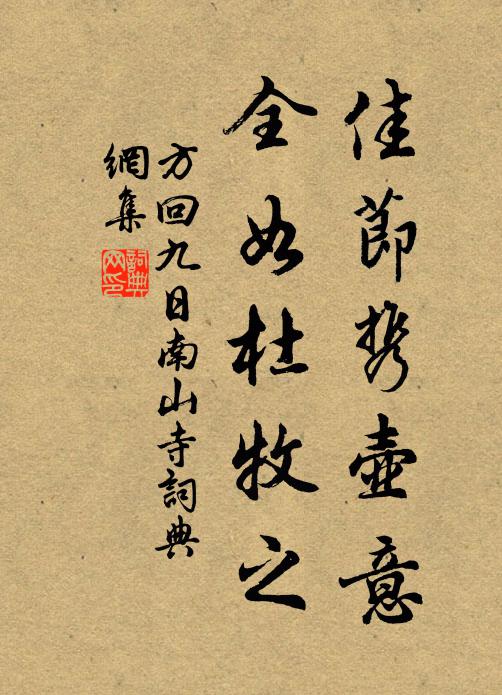 佳節携壺意
全如杜牧之
方回九日南山寺詞典
網集
詞典
網印